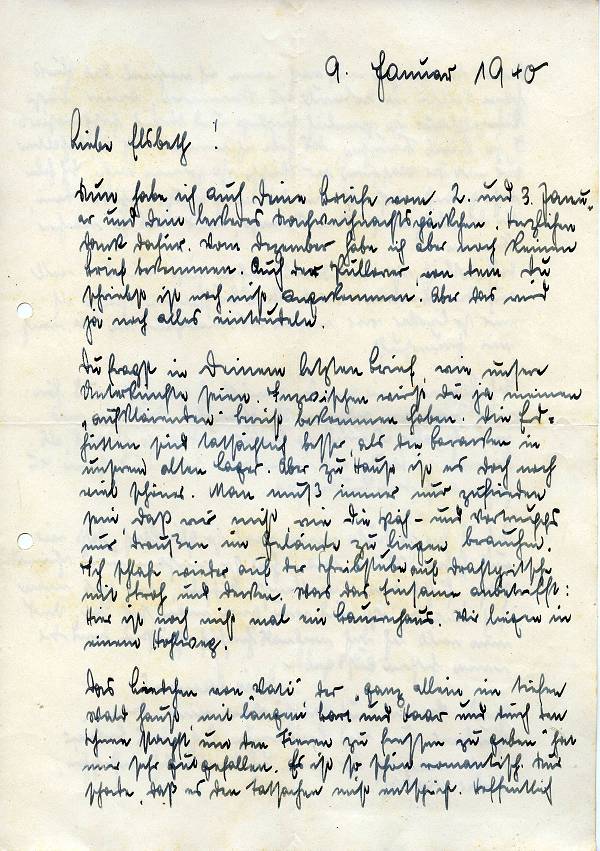 9. Januar 1940
Liebe Elsbeth!
Nun habe ich auch Deine Briefe vom 2. und 3. Janu-
ar und Dein leckeres Nachweihnachtspäckchen. Herzlichen
Dank dafür. Vom Dezember habe ich aber noch keinen
Brief bekommen. Auch der Pullover, von dem Du
schriebst ist noch nicht angekommen. Aber das wird
ja noch alles eintrudeln.
Du fragst in Deinem letzten Brief, wie unsere
Unterkünfte seien. Inzwischen wirst Du ja meinen
„aufklärenden" Brief bekommen haben. Die Erd-
hütten sind tatsächlich besser, als die Baracken in
unserem alten Lager. Aber zu Hause ist es doch noch
viel schöner. Man muß immer nur zufrieden
sein, daß wir nicht, wie die - und
nur draußen im Gelände zu liegen brauchen.
Ich schlafe wieder auf der Schreibstube auf Drahtpritsche
mit Stroh und Decken. Was das Einsame anbetrifft:
Hier ist noch nicht mal ein Bauernhaus. Wir liegen in
einem Hohlweg.
Das Liedchen von „Vati" der „ganz allein im tiefen
Wald haust mit langem Bart und Haar und durch den
Schnee stapft um den Tieren zu fressen zu geben" hat
mir sehr gut gefallen. Es ist so schön romantisch. Nur
schade, daß es den Tatsachen nicht entspricht. Hoffentlich